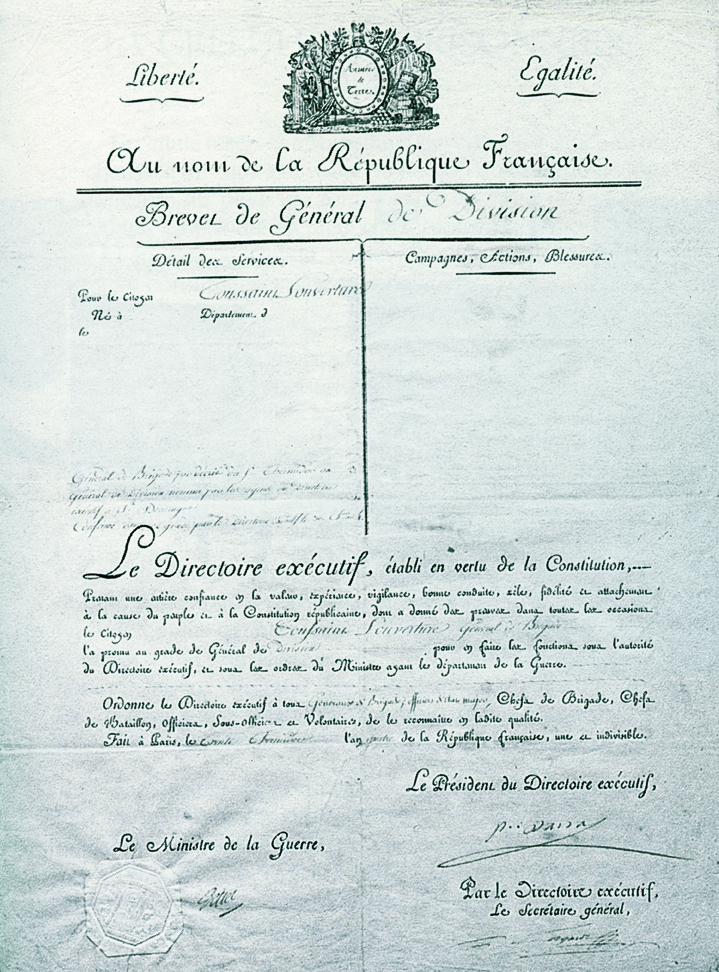 Liberté.
Armées
de
Terre.
Egalité.
Au nom de la République Française.
Brevet de Général de Division
Détail des Services.
Campagnes, Actions, Blessures.
Pour le Citoyen Toussaint Louverture
Né à Département d
le
Général de Brigade par décret du
Général de Division nommé par les
à St Domingue
Confirmé dans ce grade par le Directoire
Le Directoire exécutif, établi en vertu de la Constitution,
Prenant une entière confiance en la valeur, expérience, vigilance, bonne conduite, zèle, fidélité et attachement
à la cause du peuple et à la Constitution républicaine, dont a donné des preuves dans toutes les occasions
le Citoyen Toussaint Louverture Général de Brigade
l'a promu au grade de Général de Division pour en faire les fonctions sous l'autorité
du Directoire exécutif, et sous les ordres du Ministre ayant le département de la Guerre.
Ordonne le Directoire exécutif à tous Généraux de Brigade, officiers d'état major, Chefs de Brigade, Chefs
de Bataillon, Officiers, Sous-officiers et Volontaires, de le reconnaître en ladite qualité.
Fait à Paris, le l'an de la République française, une et indivisible.
Le Président du Directoire exécutif,
Le Ministre de la Guerre,
Par le Directoire exécutif,
Le Secrétaire général,